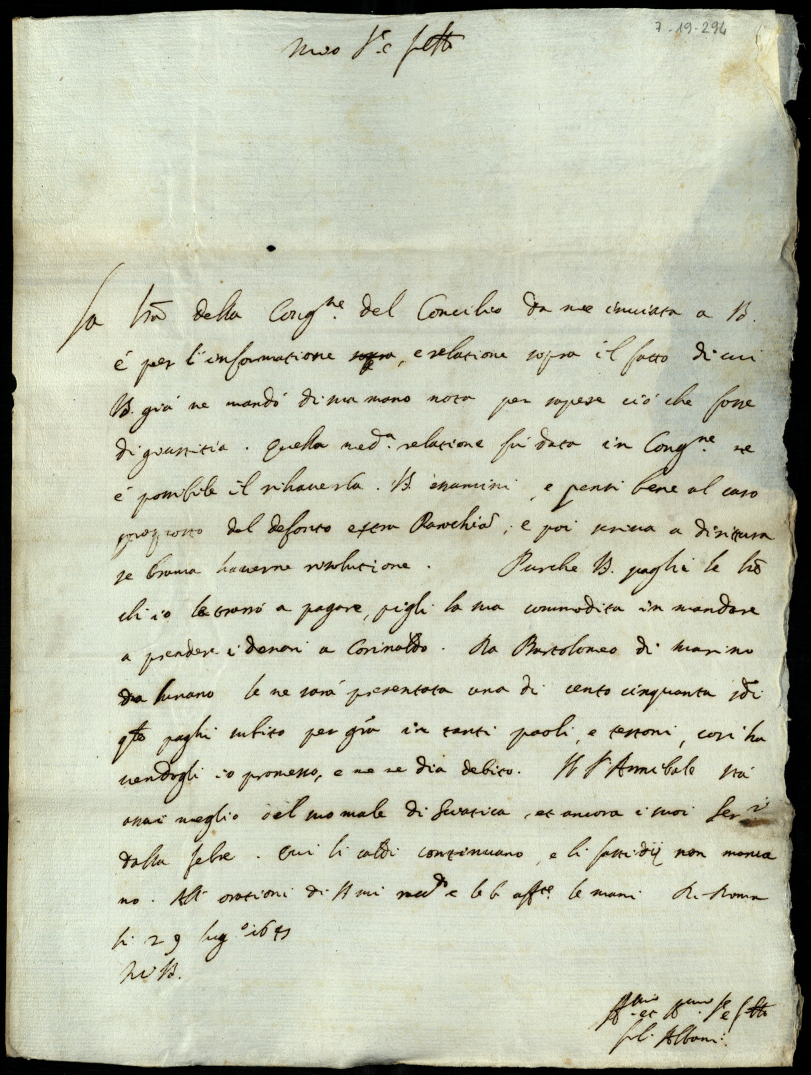 7-19-294
Mio S.re
La lra della Cong.ne del Concilio da me inviata a V.
é per l'informatione sopra, e relatione sopra il fatto di cui
V. giá ne mandó di sua mano nota per sapere ció che fosse
di giustitia. Quella med.a relatione fú data in Cong.ne ne
é possibile il rihaverla. V. essamini, e pensi bene al caso
proposto del defonto extra Parochiã, e poi scriva a dirittura
se brama haverne resolutione. Purche V. paghi le lrẽ
ch'io le trarró a pagare, pigli la sua commoditá in mandare
a prendere i denari a Corinaldo. Da Bartolomeo di Marino
da lunano le ne sará presentata una di cento cinquanta sdi
q̃to paghi subito per grã in tanti paoli, e testoni, cosi ha
vendogli io promesso, e me ne dia debito. Il S.r Annibale stá
assai meglio del suo male di Sciatica, et ancora i suoi Ser.ri
dalla febre. Qui li caldi continuano, e li fastidij non manca
no. All' orationi di V. mi racc.do e le b. aff.te le mani. Di Roma
li 29 lug.o
Mio V.
Aff.mo et S.re
Albani